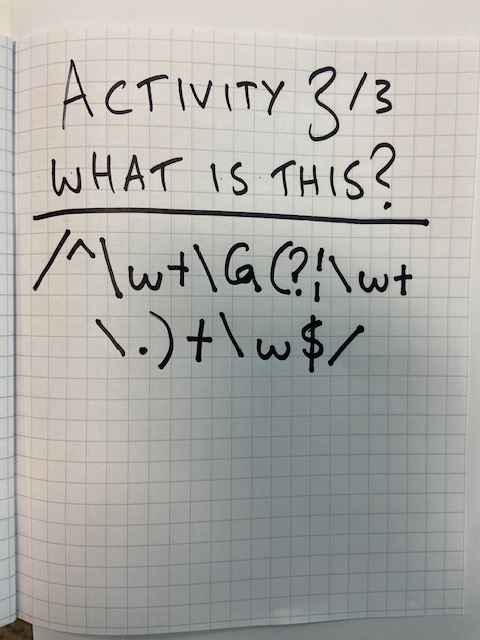 ACTIVITY 3/3
WHAT IS THIS?
/^\w+\G(?:\w+
\.)+\w$/